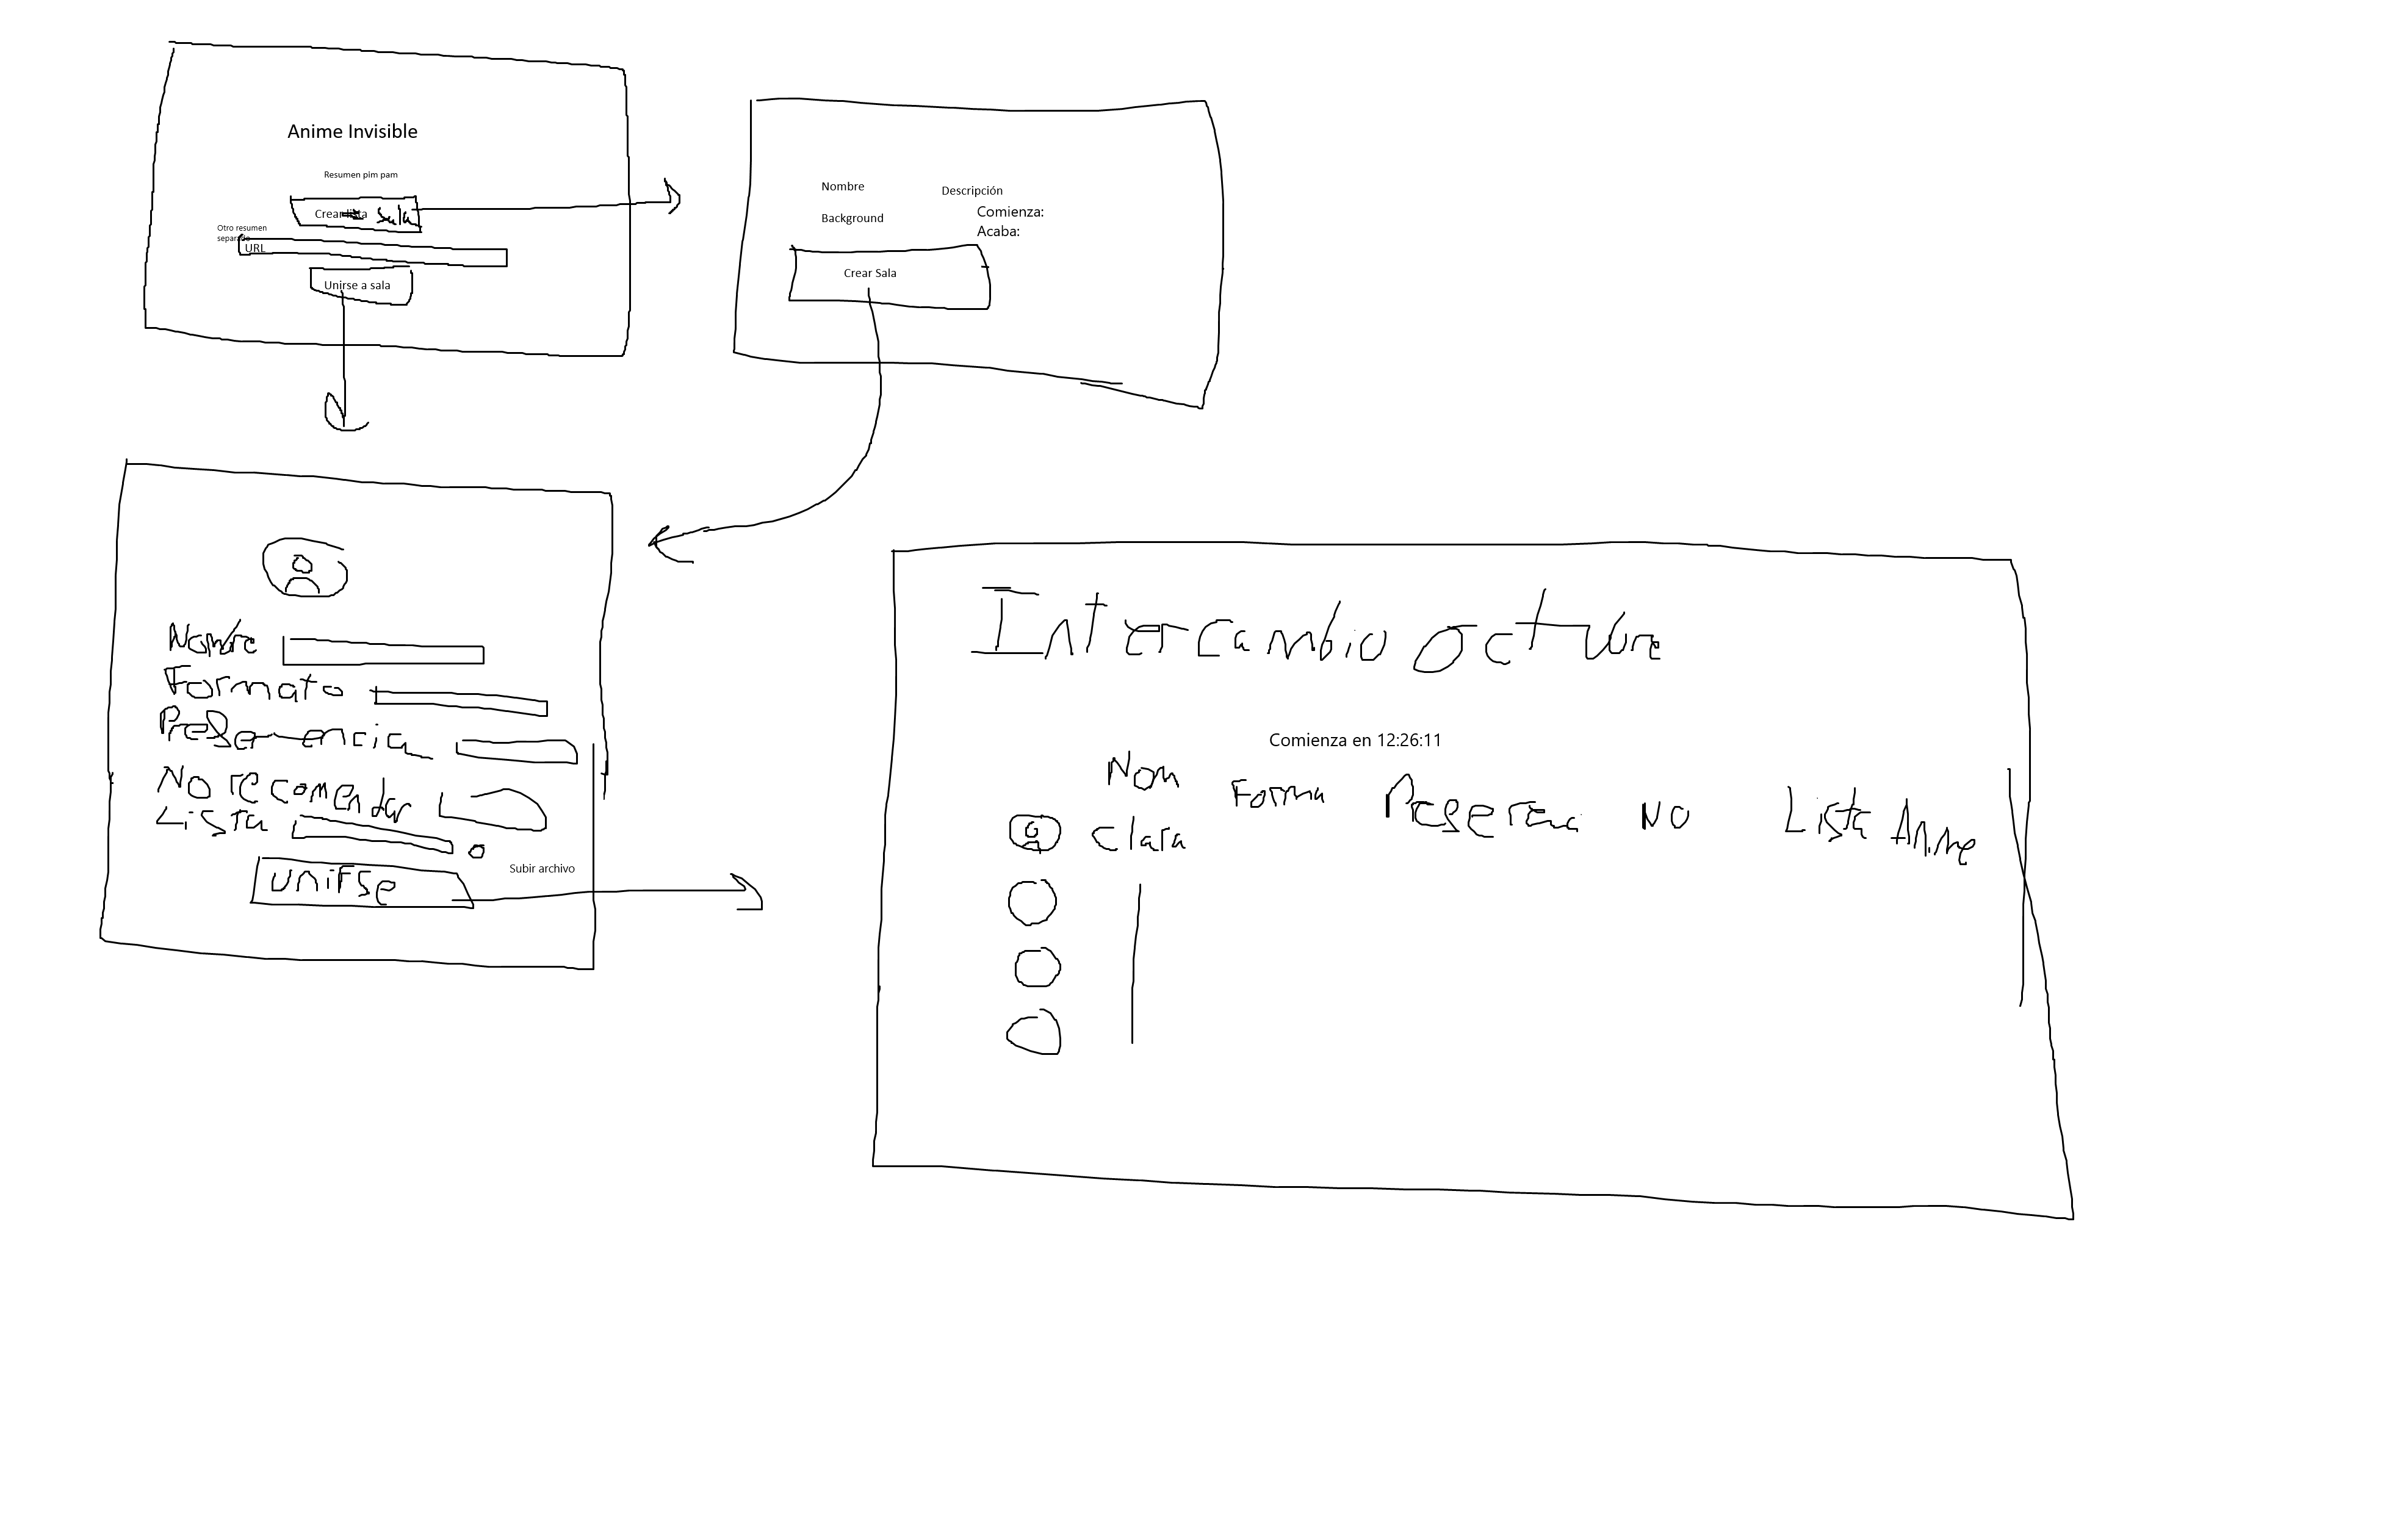 Anime Invisible
Resumen pim pam
Crear lista sala
Otro resumen
separado
URL
Unirse a sala
Nombre
Descripción
Background
Comienza:
Acaba:
Crear Sala
Nombre
Formato
Preferencia
No recomendar
Lista
Subir archivo
unirse
Intercambio octubre
Comienza en 12:26:11
Nom Forma Preferenci NO Lista Anime
Clara